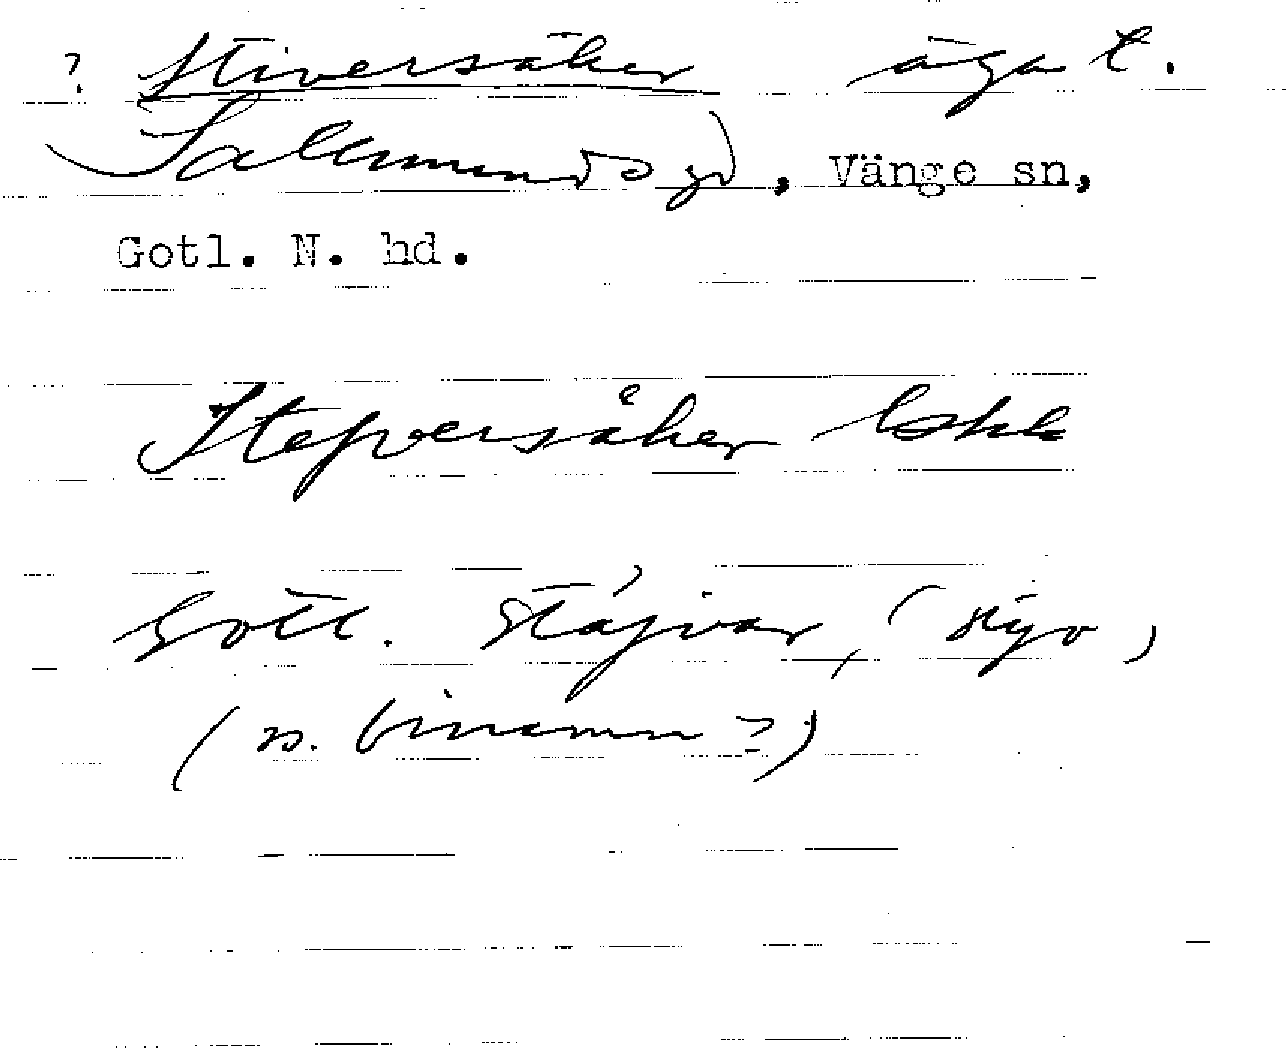 ? Stiversåker äga t.
Sallmunds gd, Vänge sn,
Gotl. N. hd.
Stepversåker Lskk
Gotl. stäjvar, (styv,
(s. binamn?)